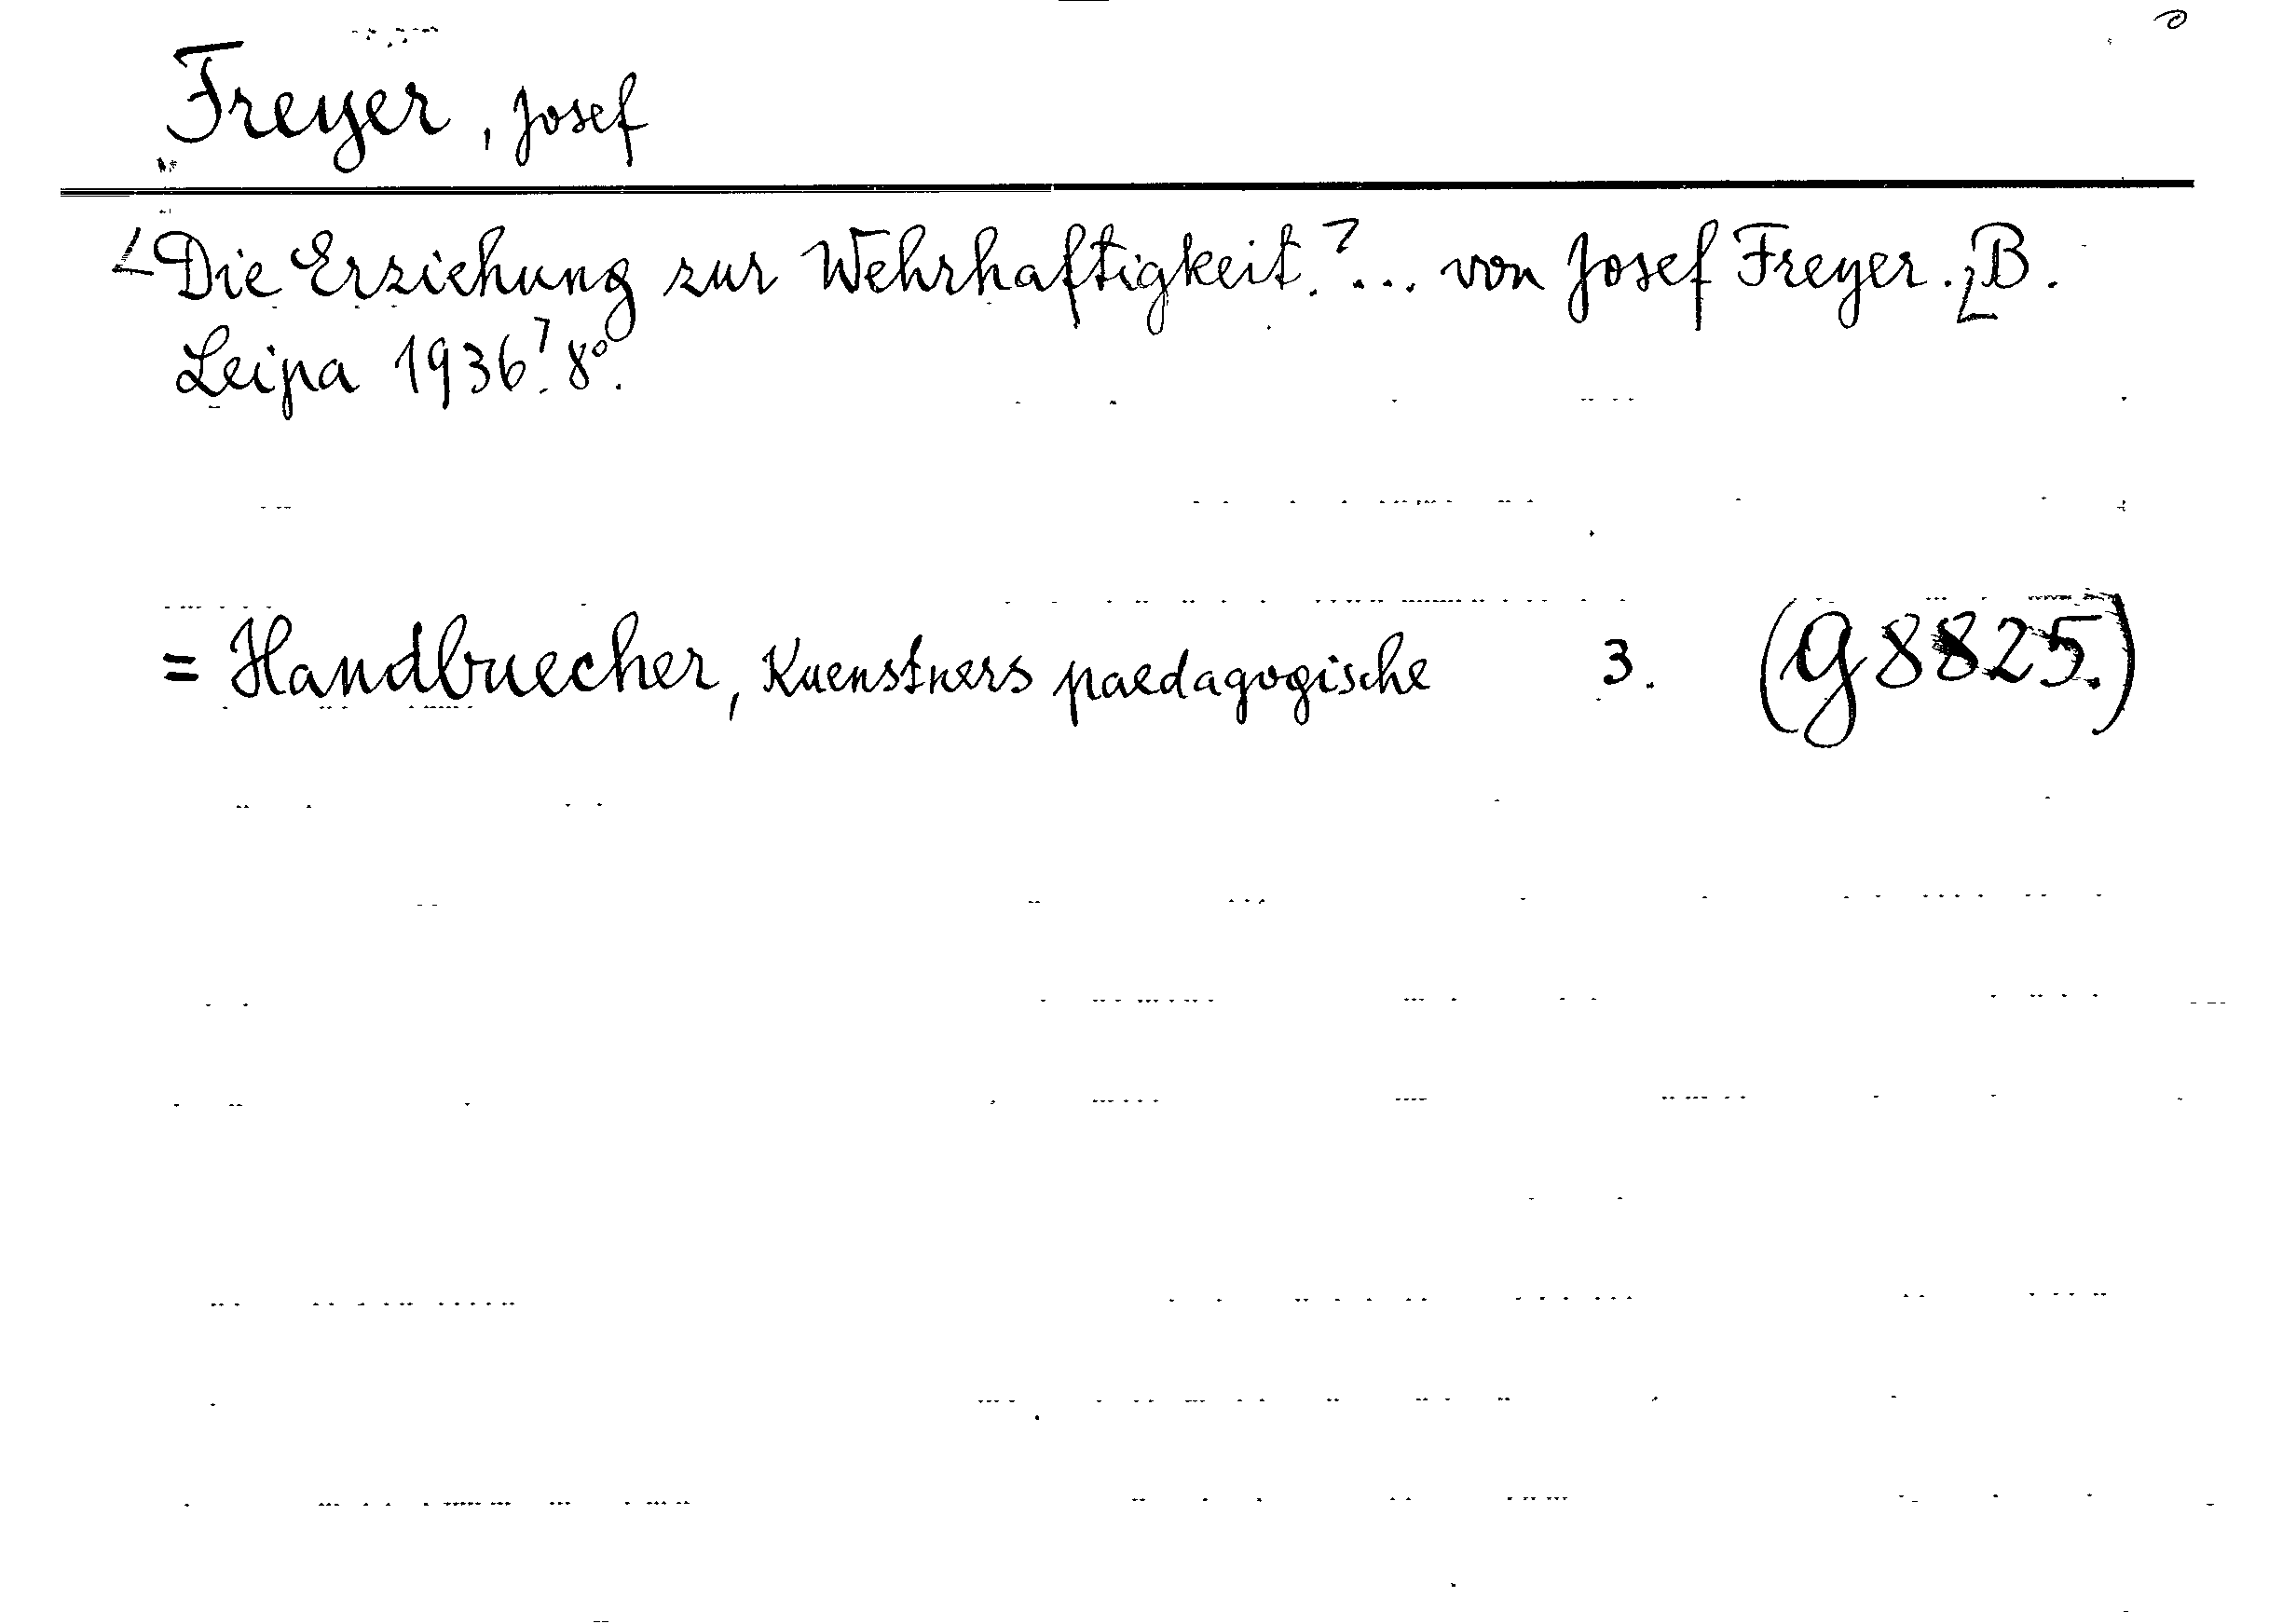 Freyer, Josef
∠Die Erziehung zur Wehrhaftigkeit.⁊... von Josef Freyer. ∠B.
Leipa 1936⁊. 8°.
= Handbuecher, Kuenstners paedagogische 3. (G 8825.)